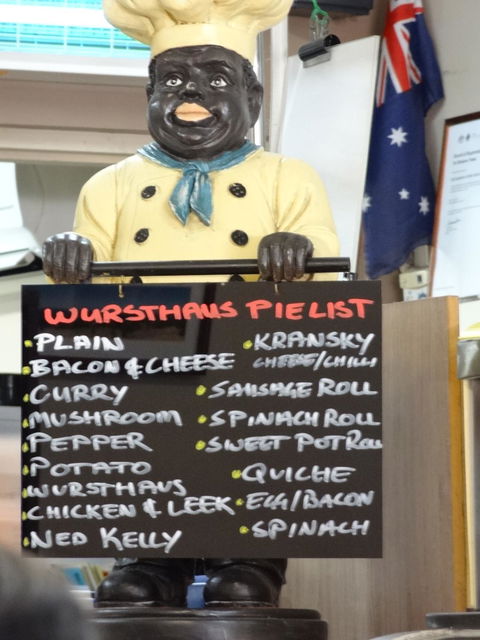 WURSTHAUS PIE LIST
PLAIN
BACON & CHEESE
CURRY
MUSHROOM
PEPPER
POTATO
WURSTHAUS
CHICKEN & LEEK
NED KELLY
KRANSKY
CHEESE/CHILLI
SAUSAGE ROLL
SPINACH ROLL
SWEET POT ROLL
QUICHE
EGG/BACON
SPINACH